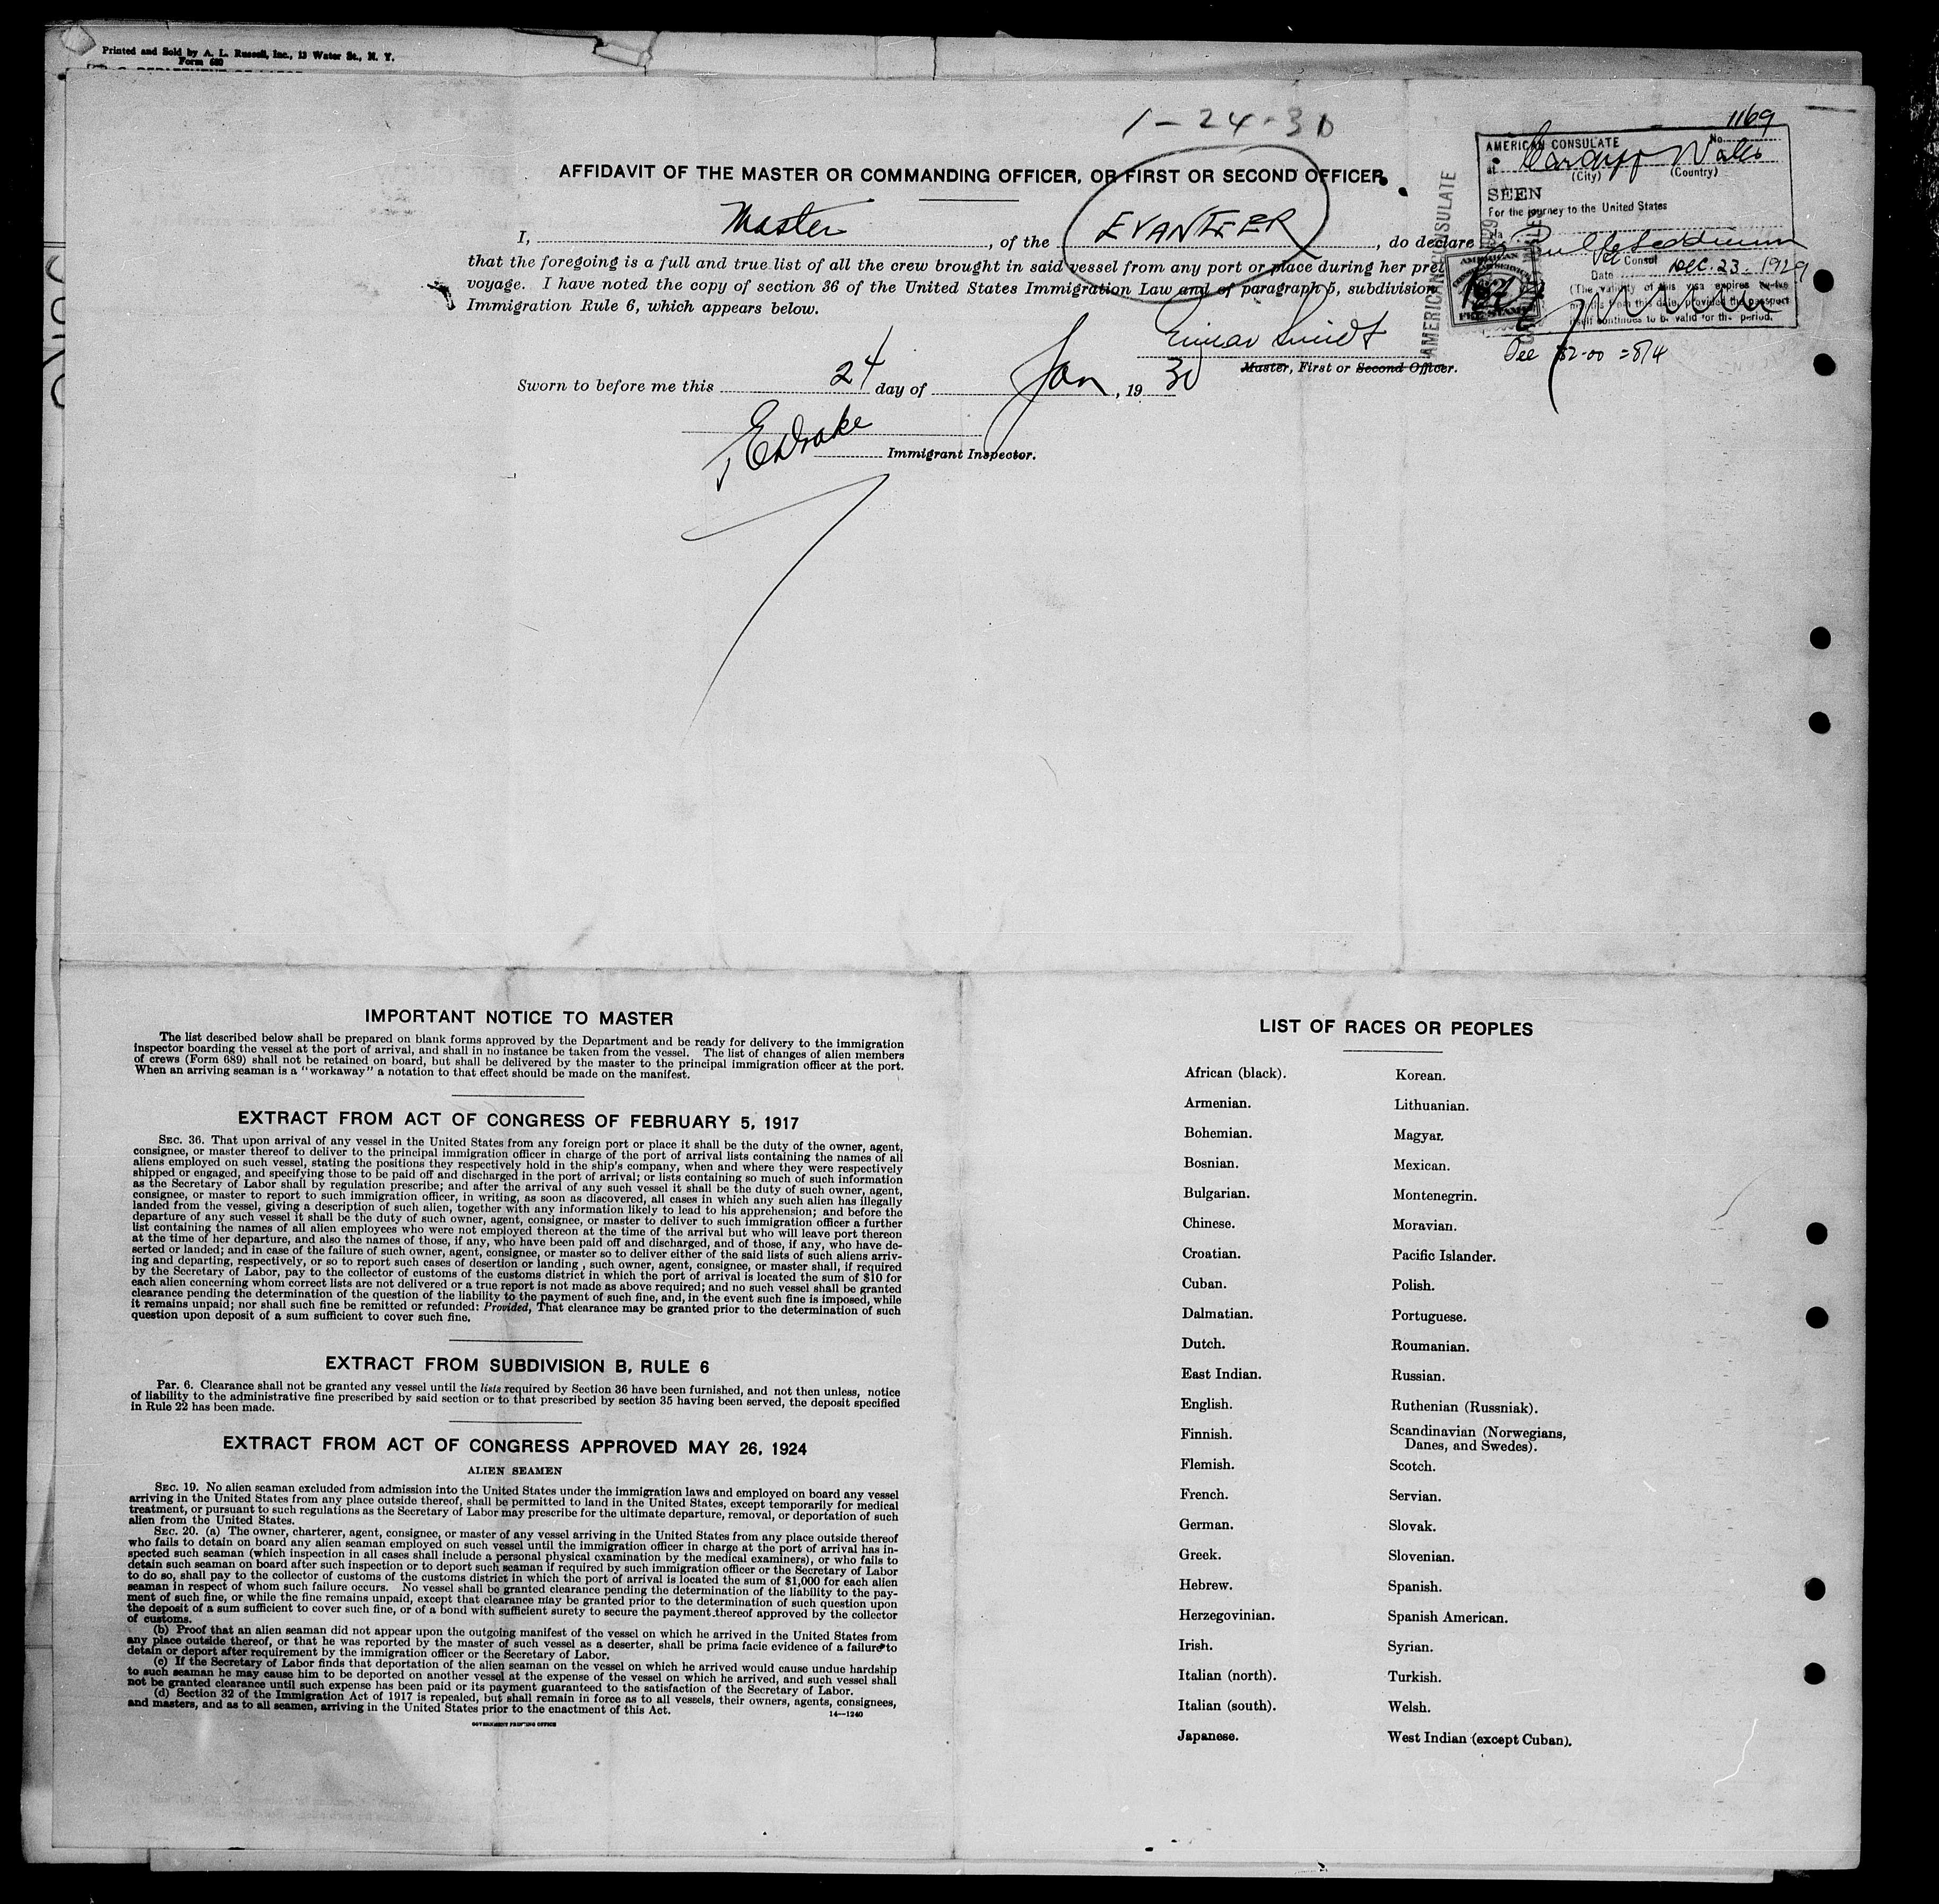 Printed and Sold by A. L. Russell, Inc., 13 Water St., N. Y.
Form 680
1-24-30
1169
AMERICAN CONSULATE No.
at Cardiff Wales
(City) (Country)
SEEN
For the journey to the United States
Consul
Date Dec. 23. 1929
(The validity of this visa expires twelve
months from this date, provided the passport
itself continues to be valid for the period.
Fee $2.00 = 8/4
AMERICAN CONSULATE
AFFIDAVIT OF THE MASTER OR COMMANDING OFFICER, OR FIRST OR SECOND OFFICER
I, Master, of the EVANGER, do declare
that the foregoing is a full and true list of all the crew brought in said vessel from any port or place during her pre
voyage. I have noted the copy of section 36 of the United States Immigration Law and of paragraph 5, subdivision
Immigration Rule 6, which appears below.
Master, First or Second Officer.
Sworn to before me this 24 day of Jan, 1930
E Drake
Immigrant Inspector.
IMPORTANT NOTICE TO MASTER
The list described below shall be prepared on blank forms approved by the Department and be ready for delivery to the immigration
inspector boarding the vessel at the port of arrival, and shall in no instance be taken from the vessel. The list of changes of alien members
of crews (Form 689) shall not be retained on board, but shall be delivered by the master to the principal immigration officer at the port.
When an arriving seaman is a "workaway" a notation to that effect should be made on the manifest.
EXTRACT FROM ACT OF CONGRESS OF FEBRUARY 5, 1917
SEC. 36. That upon arrival of any vessel in the United States from any foreign port or place it shall be the duty of the owner, agent,
consignee, or master thereof to deliver to the principal immigration officer in charge of the port of arrival lists containing the names of all
aliens employed on such vessel, stating the positions they respectively hold in the ship's company, when and where they were respectively
shipped or engaged, and specifying those to be paid off and discharged in the port of arrival; or lists containing so much of such information
as the Secretary of Labor shall by regulation prescribe; and after the arrival of any such vessel it shall be the duty of such owner, agent,
consignee, or master to report to such immigration officer, in writing, as soon as discovered, all cases in which any such alien has illegally
landed from the vessel, giving a description of such alien, together with any information likely to lead to his apprehension; and before the
departure of any such vessel it shall be the duty of such owner, agent, consignee, or master to deliver to such immigration officer a further
list containing the names of all alien employees who were not employed thereon at the time of the arrival but who will leave port thereon
at the time of her departure, and also the names of those, if any, who have been paid off and discharged, and of those, if any, who have de-
serted or landed; and in case of the failure of such owner, agent, consignee, or master so to deliver either of the said lists of such aliens arriv-
ing and departing, respectively, or so to report such cases of desertion or landing , such owner, agent, consignee, or master shall, if required
by the Secretary of Labor, pay to the collector of customs of the customs district in which the port of arrival is located the sum of $10 for
each alien concerning whom correct lists are not delivered or a true report is not made as above required; and no such vessel shall be granted
clearance pending the determination of the question of the liability to the payment of such fine, and, in the event such fine is imposed, while
it remains unpaid; nor shall such fine be remitted or refunded: Provided, That clearance may be granted prior to the determination of such
question upon deposit of a sum sufficient to cover such fine.
EXTRACT FROM SUBDIVISION B, RULE 6
Par. 6. Clearance shall not be granted any vessel until the lists required by Section 36 have been furnished, and not then unless, notice
of liability to the administrative fine prescribed by said section or to that prescribed by section 35 having been served, the deposit specified
in Rule 22 has been made.
EXTRACT FROM ACT OF CONGRESS APPROVED MAY 26, 1924
ALIEN SEAMEN
SEC. 19. No alien seaman excluded from admission into the United States under the immigration laws and employed on board any vessel
arriving in the United States from any place outside thereof, shall be permitted to land in the United States, except temporarily for medical
treatment, or pursuant to such regulations as the Secretary of Labor may prescribe for the ultimate departure, removal, or deportation of such
alien from the United States.
SEC. 20. (a) The owner, charterer, agent, consignee, or master of any vessel arriving in the United States from any place outside thereof
who fails to detain on board any alien seaman employed on such vessel until the immigration officer in charge at the port of arrival has in-
spected such seaman (which inspection in all cases shall include a personal physical examination by the medical examiners), or who fails to
detain such seaman on board after such inspection or to deport such seaman if required by such immigration officer or the Secretary of Labor
to do so, shall pay to the collector of customs of the customs district in which the port of arrival is located the sum of $1,000 for each alien
seaman in respect of whom such failure occurs. No vessel shall be granted clearance pending the determination of the liability to the pay-
ment of such fine, or while the fine remains unpaid, except that clearance may be granted prior to the determination of such question upon
the deposit of a sum sufficient to cover such fine, or of a bond with sufficient surety to secure the payment thereof approved by the collector
of customs.
(b) Proof that an alien seaman did not appear upon the outgoing manifest of the vessel on which he arrived in the United States from
any place outside thereof, or that he was reported by the master of such vessel as a deserter, shall be prima facie evidence of a failure to
detain or deport after requirement by the immigration officer or the Secretary of Labor.
(c) If the Secretary of Labor finds that deportation of the alien seaman on the vessel on which he arrived would cause undue hardship
to such seaman he may cause him to be deported on another vessel at the expense of the vessel on which he arrived, and such vessel shall
not be granted clearance until such expense has been paid or its payment guaranteed to the satisfaction of the Secretary of Labor.
(d) Section 32 of the Immigration Act of 1917 is repealed, but shall remain in force as to all vessels, their owners, agents, consignees,
and masters, and as to all seamen, arriving in the United States prior to the enactment of this Act.
14—1240
GOVERNMENT PRINTING OFFICE
LIST OF RACES OR PEOPLES
African (black).
Armenian.
Bohemian.
Bosnian.
Bulgarian.
Chinese.
Croatian.
Cuban.
Dalmatian.
Dutch.
East Indian.
English.
Finnish.
Flemish.
French.
German.
Greek.
Hebrew.
Herzegovinian.
Irish.
Italian (north).
Italian (south).
Japanese.
Korean.
Lithuanian.
Magyar.
Mexican.
Montenegrin.
Moravian.
Pacific Islander.
Polish.
Portuguese.
Roumanian.
Russian.
Ruthenian (Russniak).
Scandinavian (Norwegians,
Danes, and Swedes).
Scotch.
Servian.
Slovak.
Slovenian.
Spanish.
Spanish American.
Syrian.
Turkish.
Welsh.
West Indian (except Cuban).